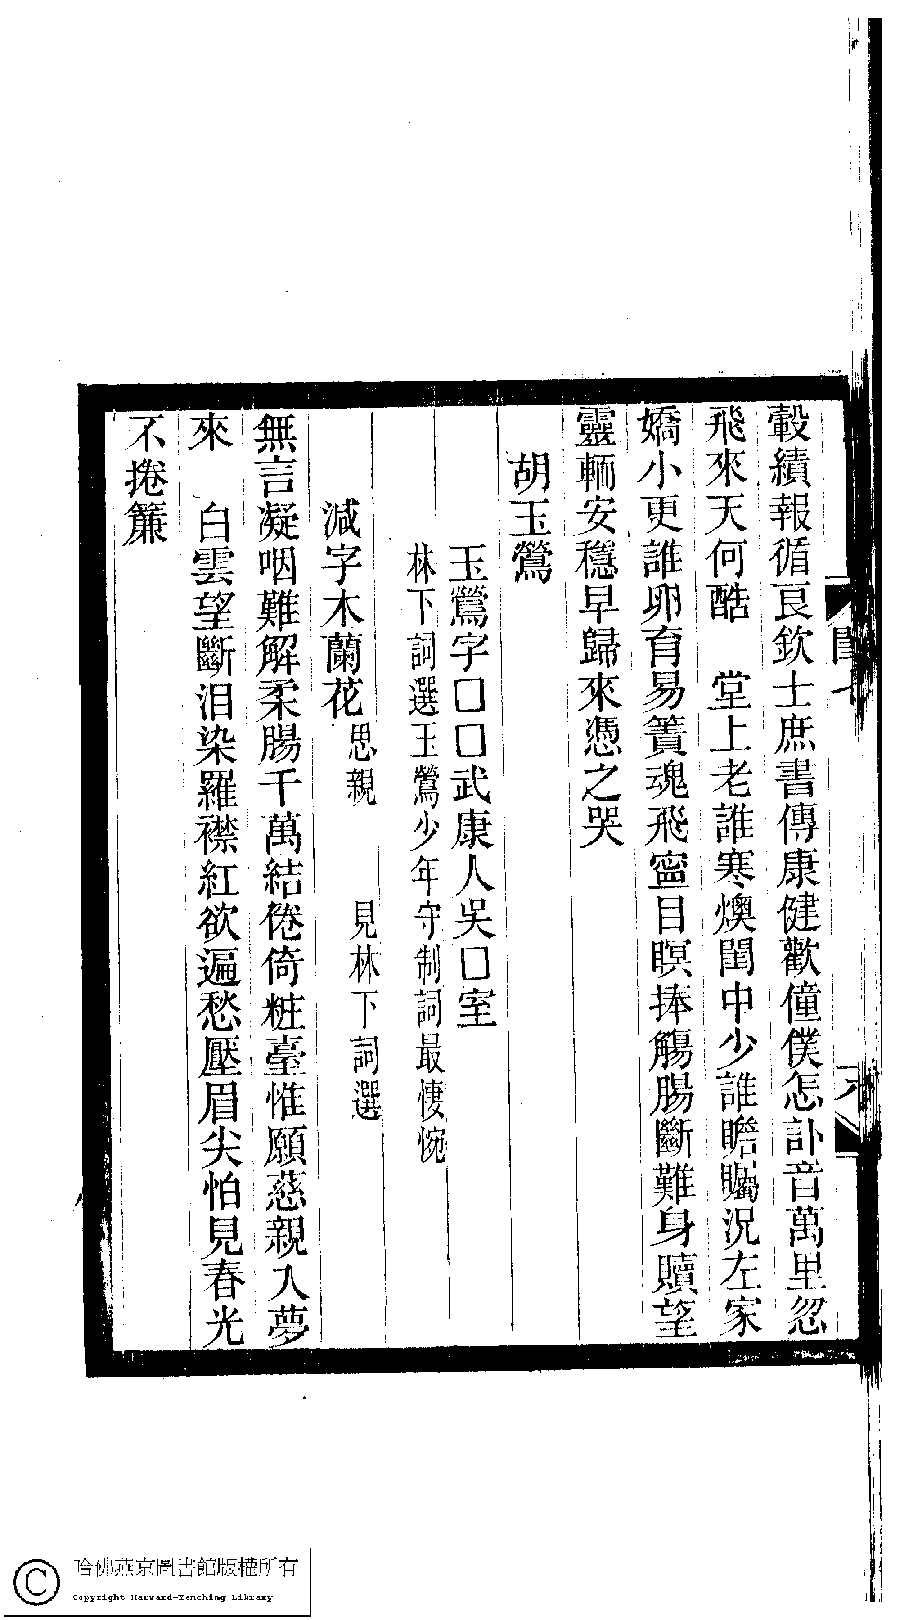 轂績報循良欽士庶書傳康健歡僮僕怎訃音萬里忽
飛來天何酷　堂上老誰寒燠閨中少誰瞻矚況左家
嬌小更誰卵育易簀魂飛寧目瞑捧觴腸斷難身贖望
靈輀安穩早歸來憑之哭
胡玉鶯
玉鶯字囗囗武康人吳囗室
林下詞選玉鶯少年守制詞最悽惋
減字木蘭花 思親　見林下詞選
無言凝咽難解柔腸千萬結倦倚粧臺惟願慈親入夢
來　白雲望斷泪染羅襟紅欲遍愁壓眉尖怕見春光
不捲簾
哈佛燕京圖書館版權所有
Copyright Harvard-Yenching Library